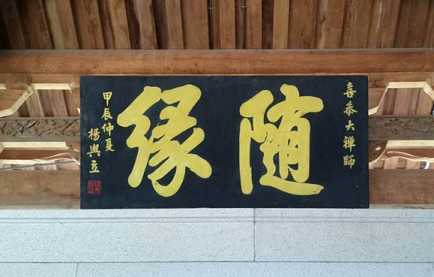 喜泰大禪師
隨緣
甲辰仲夏
楊興立